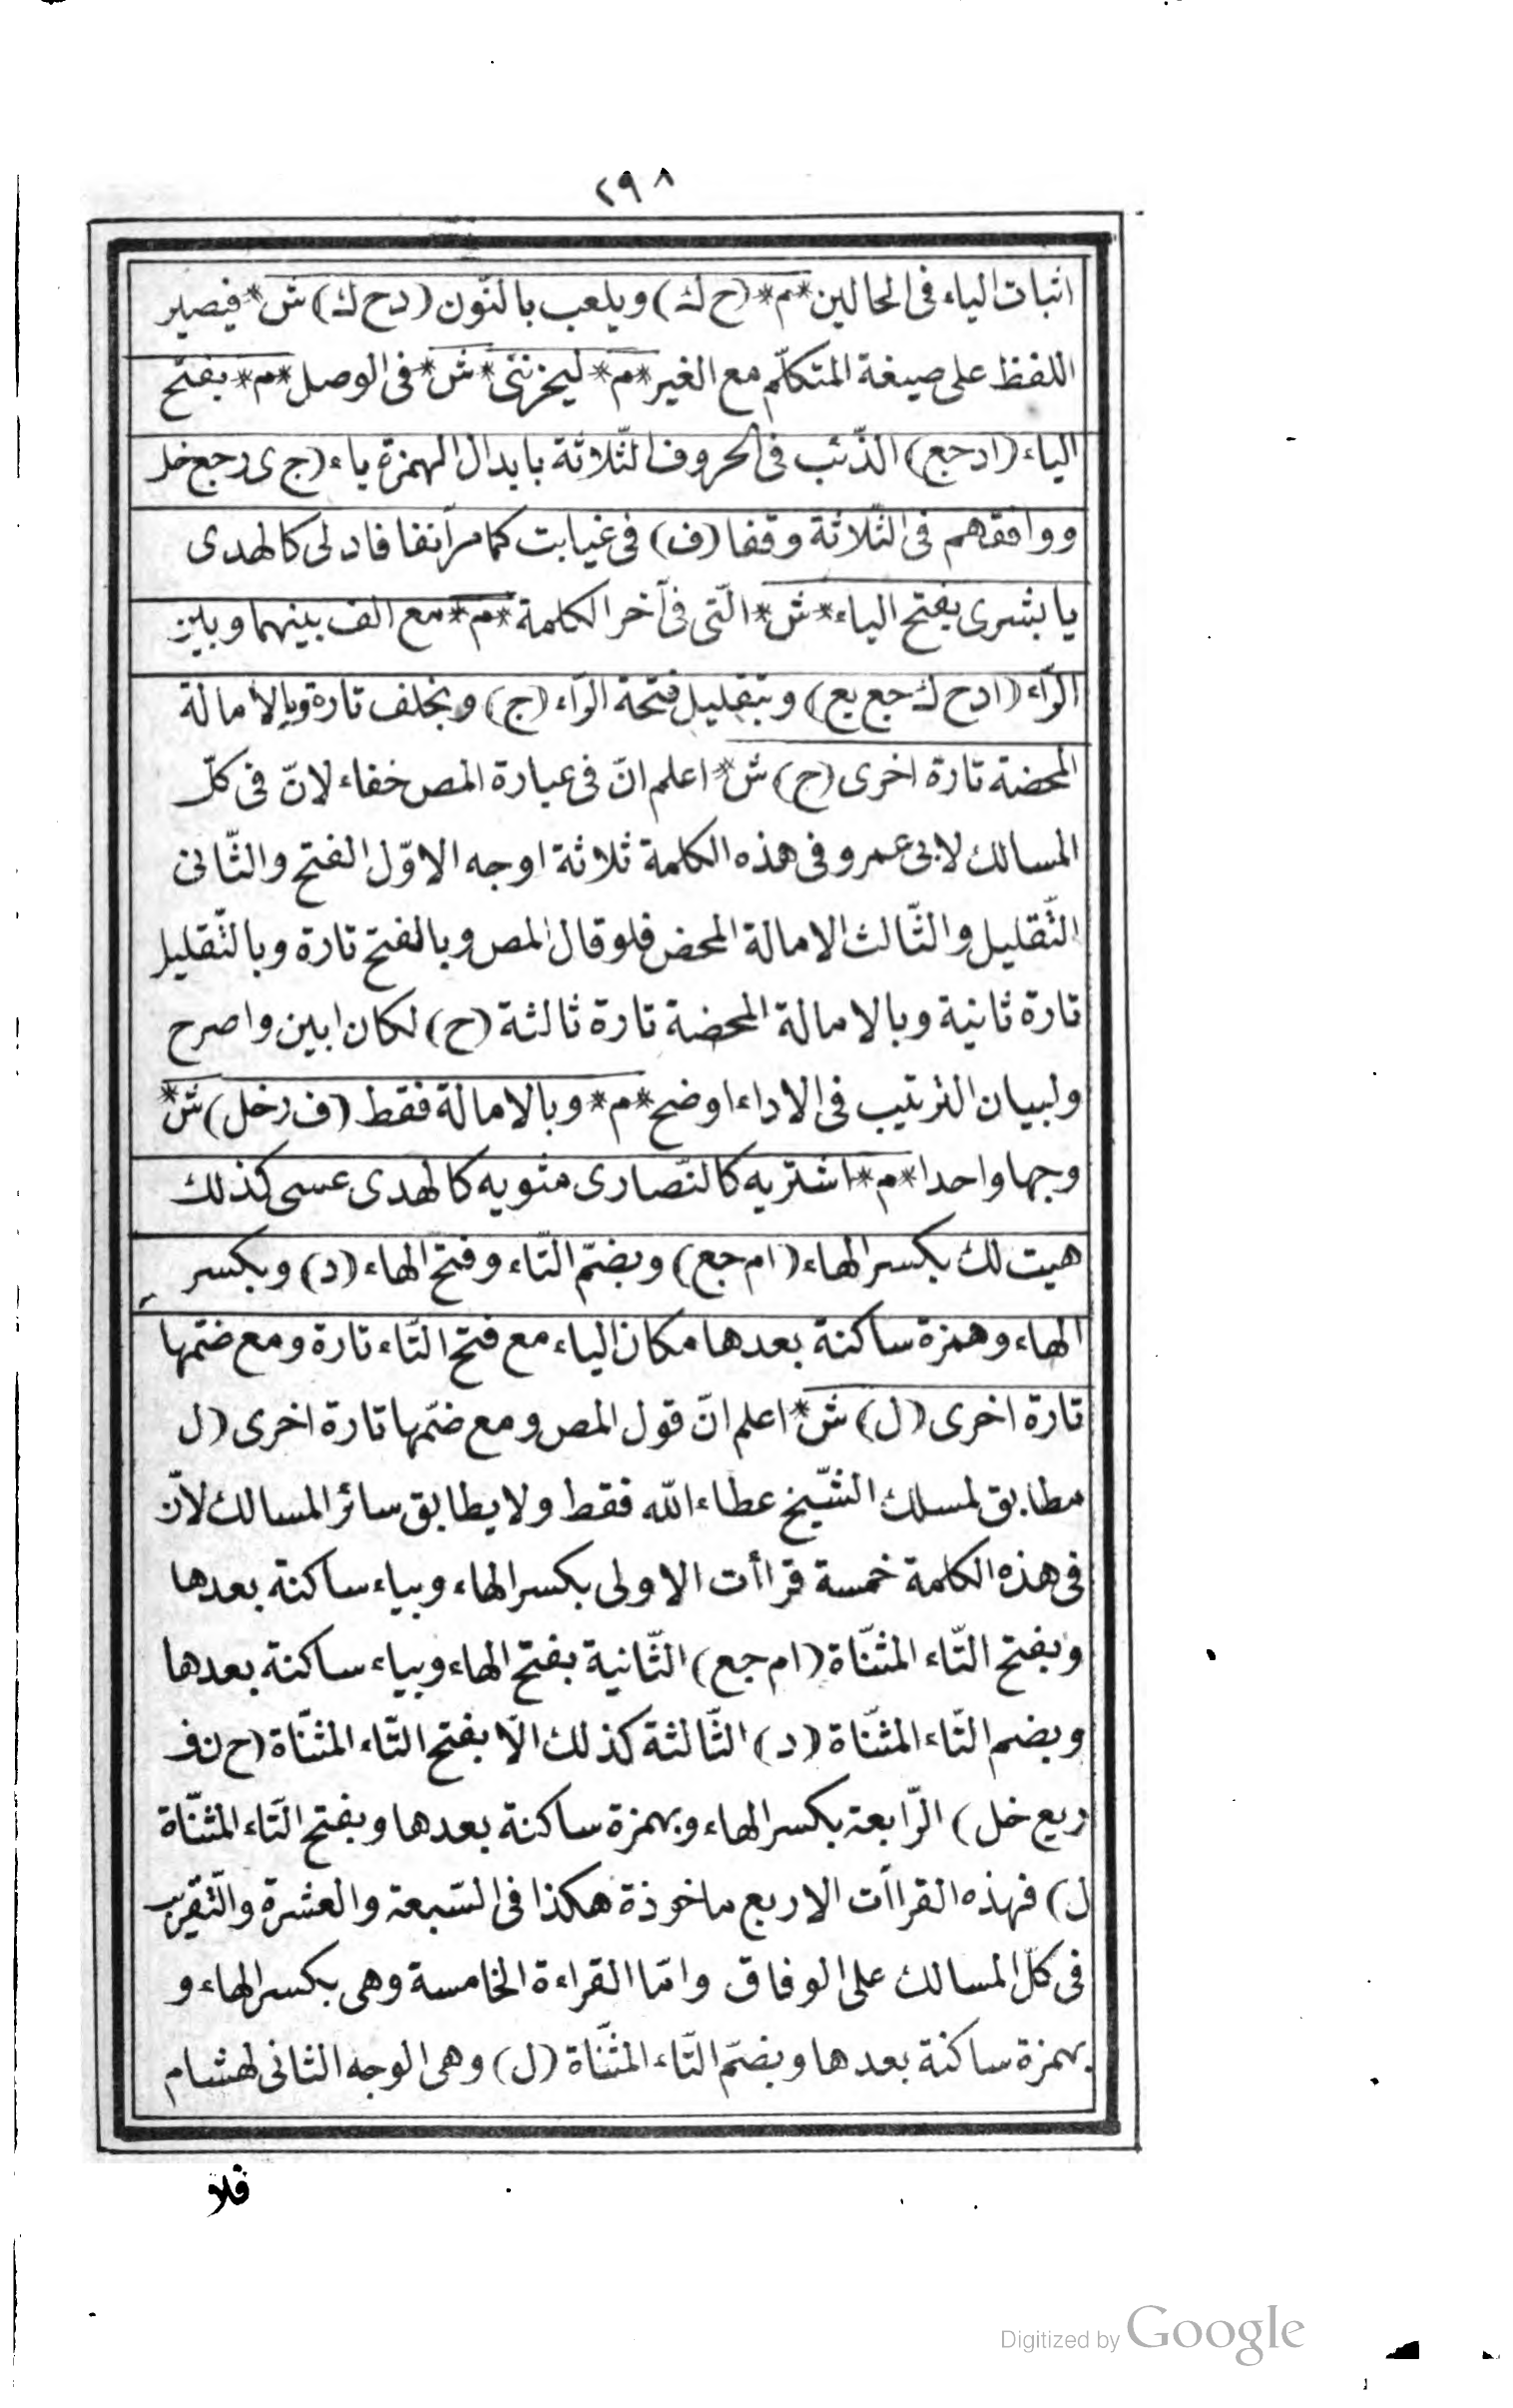 ٢٩٨
اثبات الياء فى الحالين *م* (ح ك) ويلعب بالنّون (د ح ك) ش* فيصير
اللفظ على صيغة المتكلّم مع الغير *م* ليحزننى *ش* فى الوصل *م* بفتح
الياء (ا د جع) الذّئب فى الحروف الثّلاثة بابدال الهمزة ياء (ج ى ر جع خل
ووافقهم فى الثّلاثة وقفا (ف) فى غيابت كما مرّ آنفا فادلى كالهدى
يا بشرى بفتح الياء *ش* الّتى فى آخر الكلمة *م* مع الف بينهما وبين
الرّاء (ا د ح ك جع يع) وبتقليل فتحة الرّاء (ج) وبخلف تارة وبالامالة
المحضة تارة اخرى (ح) ش* اعلم انّ فى عبارة المص خفاء لانّ فى كلّ
المسالك لابى عمرو فى هذه الكلمة ثلاثة اوجه الاوّل الفتح والثّانى
التّقليل والثّالث الامالة المحض فلو قال المص وبالفتح تارة وبالتّقليل
تارة ثانية وبالامالة المحضة تارة ثالثة (ح) لكان ابين واصرح
ولبيان الترتيب فى الاداء اوضح *م* وبالامالة فقط (ف ر خل) ش*
وجها واحدا *م* اشتريه كالنّصارى مثويه كالهدى عسى كذلك
هيت لك بكسر الهاء (ا م جع) وبضمّ التّاء وفتح الهاء (د) وبكسر
الهاء وهمزة ساكنة بعدها مكان الياء مع فتح التّاء تارة ومع ضمّها
تارة اخرى (ل) ش* اعلم انّ قول المص ومع ضمّها تارة اخرى (ل
مطابق لمسلك الشّيخ عطاء اللّه فقط ولا يطابق سائر المسالك لانّ
فى هذه الكلمة خمسة قراأت الاولى بكسر الهاء وبياء ساكنة بعدها
وبفتح التّاء المثنّاة (ا م جع) الثّانية بفتح الهاء وبياء ساكنة بعدها
وبضم التّاء المثنّاة (د) الثّالثة كذلك الّا بفتح التّاء المثنّاة (ح ن ف
ر يع خل) الرّابعة بكسر الهاء وبهمزة ساكنة بعدها وبفتح التّاء المثنّاة
ل) فهذه القراآت الاربع ماخوذة هكذا فى السّبعة والعشرة والتّقريب
فى كلّ المسالك على الوفاق وامّا القراءة الخامسة وهى بكسر الهاء و
بهمزة ساكنة بعدها وبضمّ التّاء المثنّاة (ل) وهى الوجه الثانى لهشام
فلا
Digitized by Google